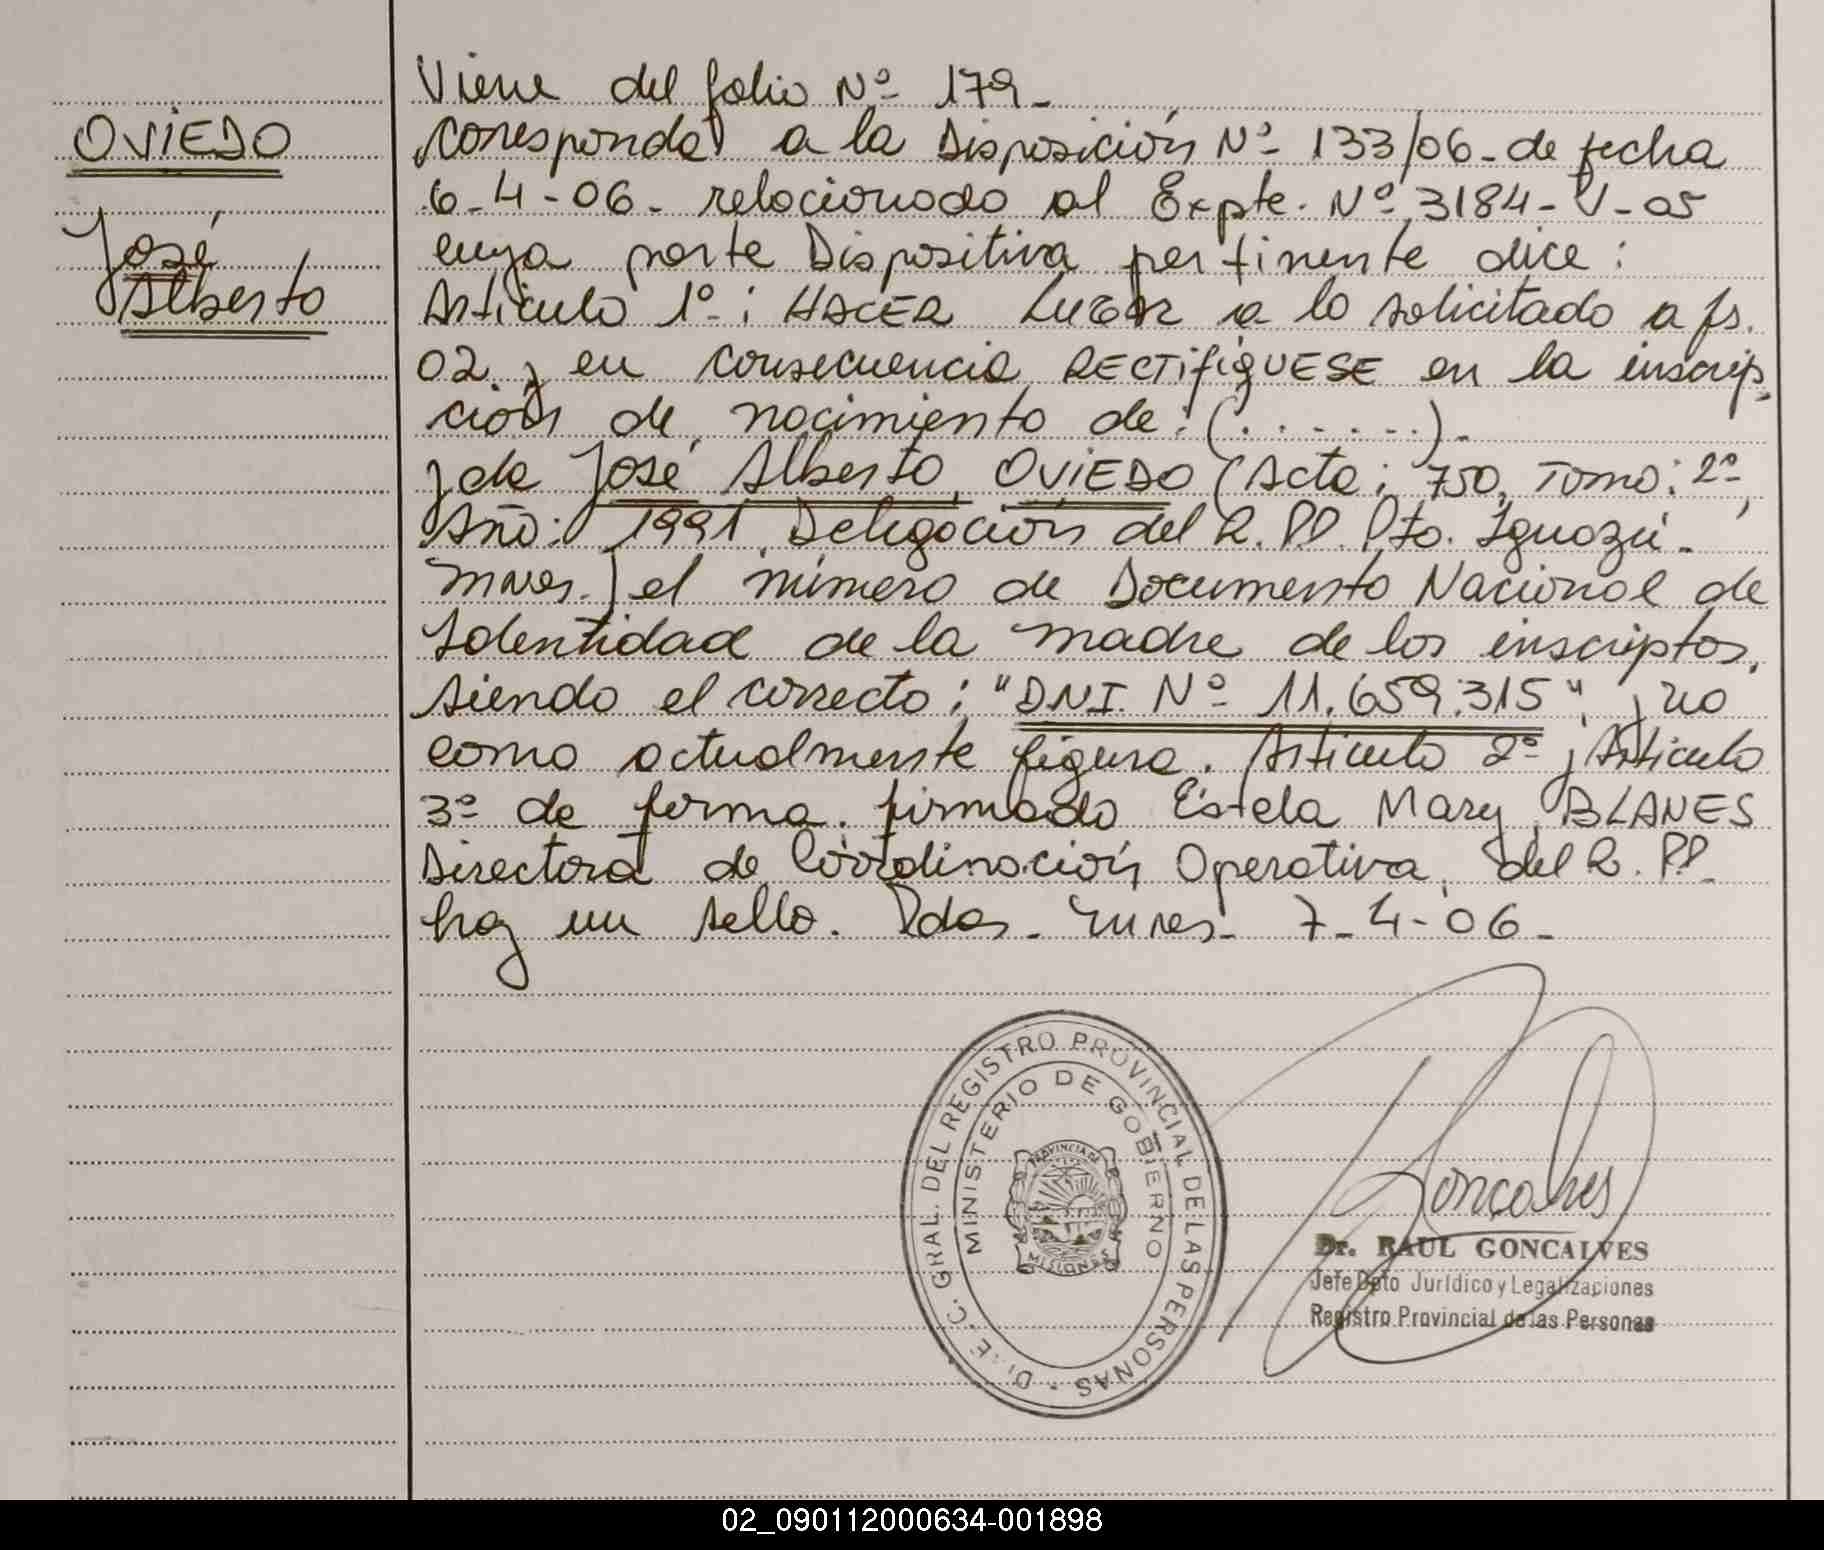 OVIEDO
José
Alberto
Viene del folio Nº 179-
Corresponde a la Disposición Nº 133/06- de fecha
6-4-06- relacionado al Expte. Nº 3184-V-05
cuya parte Dispositiva pertinente dice:
Artículo 1º: HACER LUGAR a lo solicitado a fs.
02 y en consecuencia RECTIFÍQUESE en la inscrip-
ción de nacimiento de: (.......)-
y de José Alberto OVIEDO (Acta: 750, Tomo: 2º,
Año: 1991, Delegación del R.PP. Pto. Iguazú-
Mnes.) el número de Documento Nacional de
Identidad de la madre de los inscriptos,
siendo el correcto: "DNI. Nº 11.659.315", y no
como actualmente figura. Artículo 2º y Artículo
3º de forma. firmado Estela Mary BLANES
Directora de Coordinación Operativa, del R.PP.
hay un sello. Pdas- Mnes- 7-4-06-
C. GRAL. DEL REGISTRO PROVINCIAL DE LAS PERSONAS -
MINISTERIO DE GOBIERNO
PROVINCIA DE
MISIONES
Goncalves
Dr. RAUL GONCALVES
Jefe Dpto Jurídico y Legalizaciones
Registro Provincial de las Personas
02_090112000634-001898